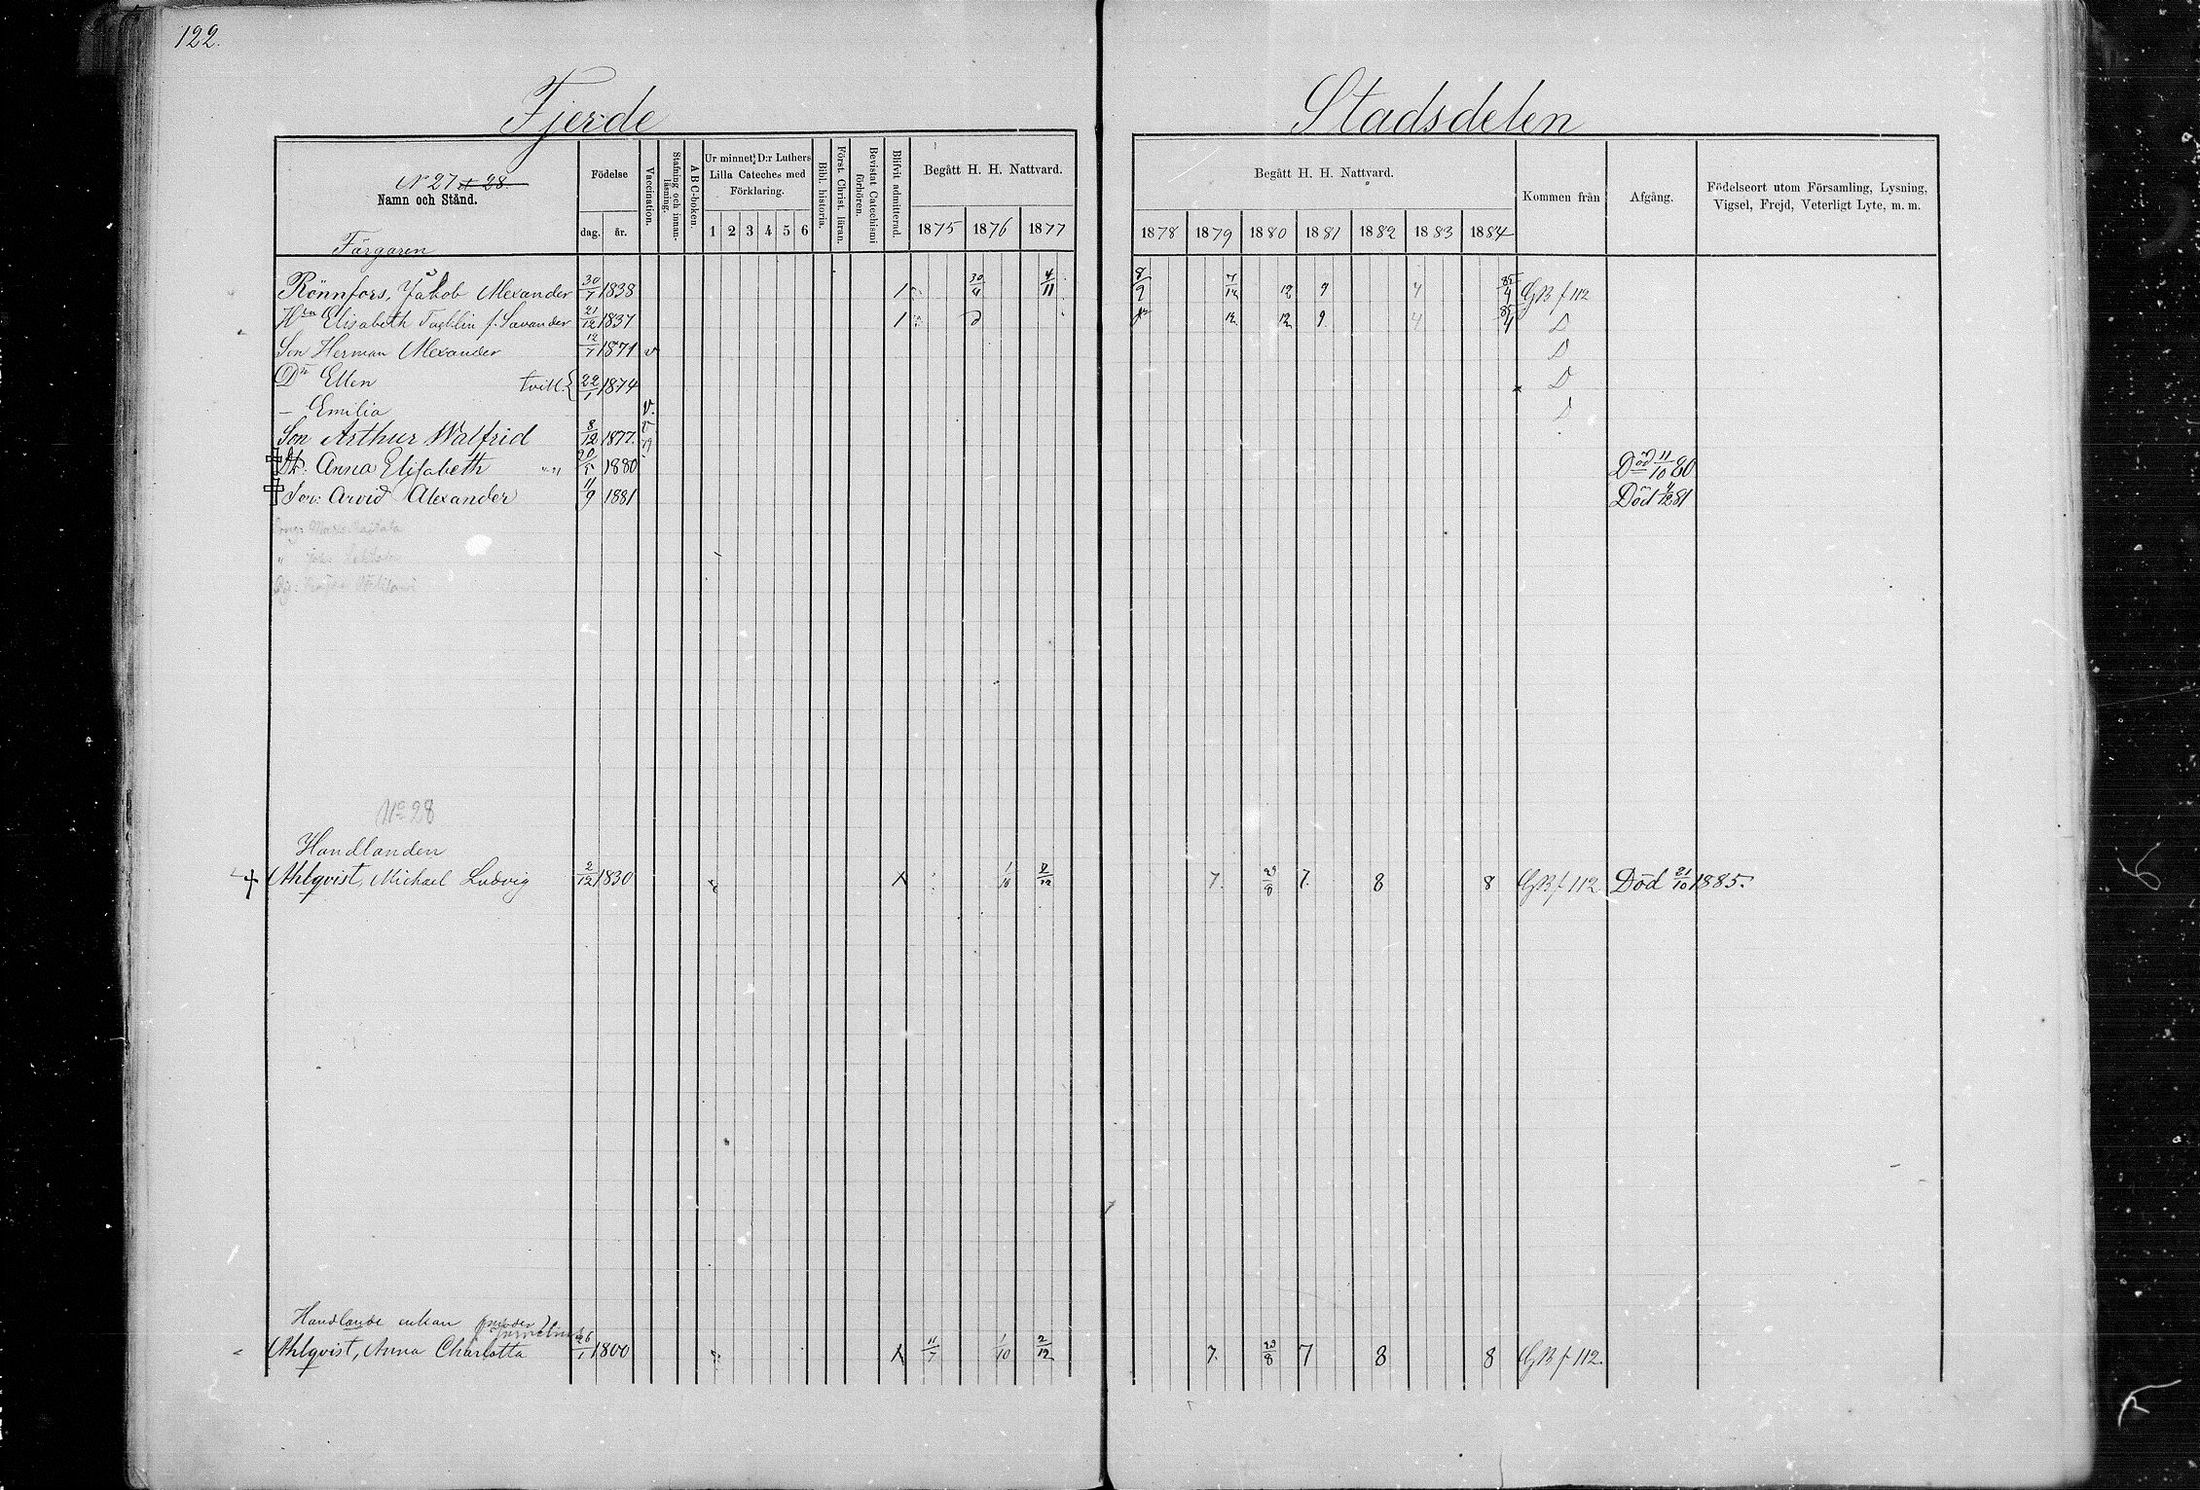 122.
Fjerde Stadsdelen
N 27 et 28
Namn och Stånd.
Födelse
dag. år.
Vaccination.
Stafning och innanläsning.
ABC-boken.
Ur minnet: D:r Luthers Lilla Cateches med Förklaring.
1 2 3 4 5 6
Bibl. historia.
Först. Christ. läran.
Bevistat Catechismi förhören.
Blifvit admitterad.
Begått H. H. Nattvard.
1875 1876 1877
Begått H. H. Nattvard.
1878 1879 1880 1881 1882 1883 1884
Kommen från
Afgång.
Födelseort utom Församling, Lysning, Vigsel, Frejd, Veterligt Lyte, m. m.
Färgaren
Rönnfors, Jakob Alexander 30/7 1838 1 30/4 4/11 8/9 7/12 12 9 4 85/4 GB f 112
Hru Elisabeth f. Savander 21/12 1837 1 12 12 9 4 85/4 D
Son Herman Alexander 12/7 1871 v D
Dr Ellen tvill. { 22/1 1874 D
– Emilia v. D
Son Arthur Walfrid 8/12 1877. v
Dr. Anna Elisabeth 20/5 1880 Död 11/10 80
Son: Arvid Alexander 11/9 1881 Död 4/12 81
No 28
Handlanden
Ahlqvist, Michael Ludvig 2/12 1830 1/10 2/12 7. 29/8 7. 8 8 GB f 112 Död 21/10 1885.
Handlande enkan
Ahlqvist, Anna Charlotta 26/1 1800 11/7 1/10 2/12 7. 29/8 7 8 8 GB f 112.